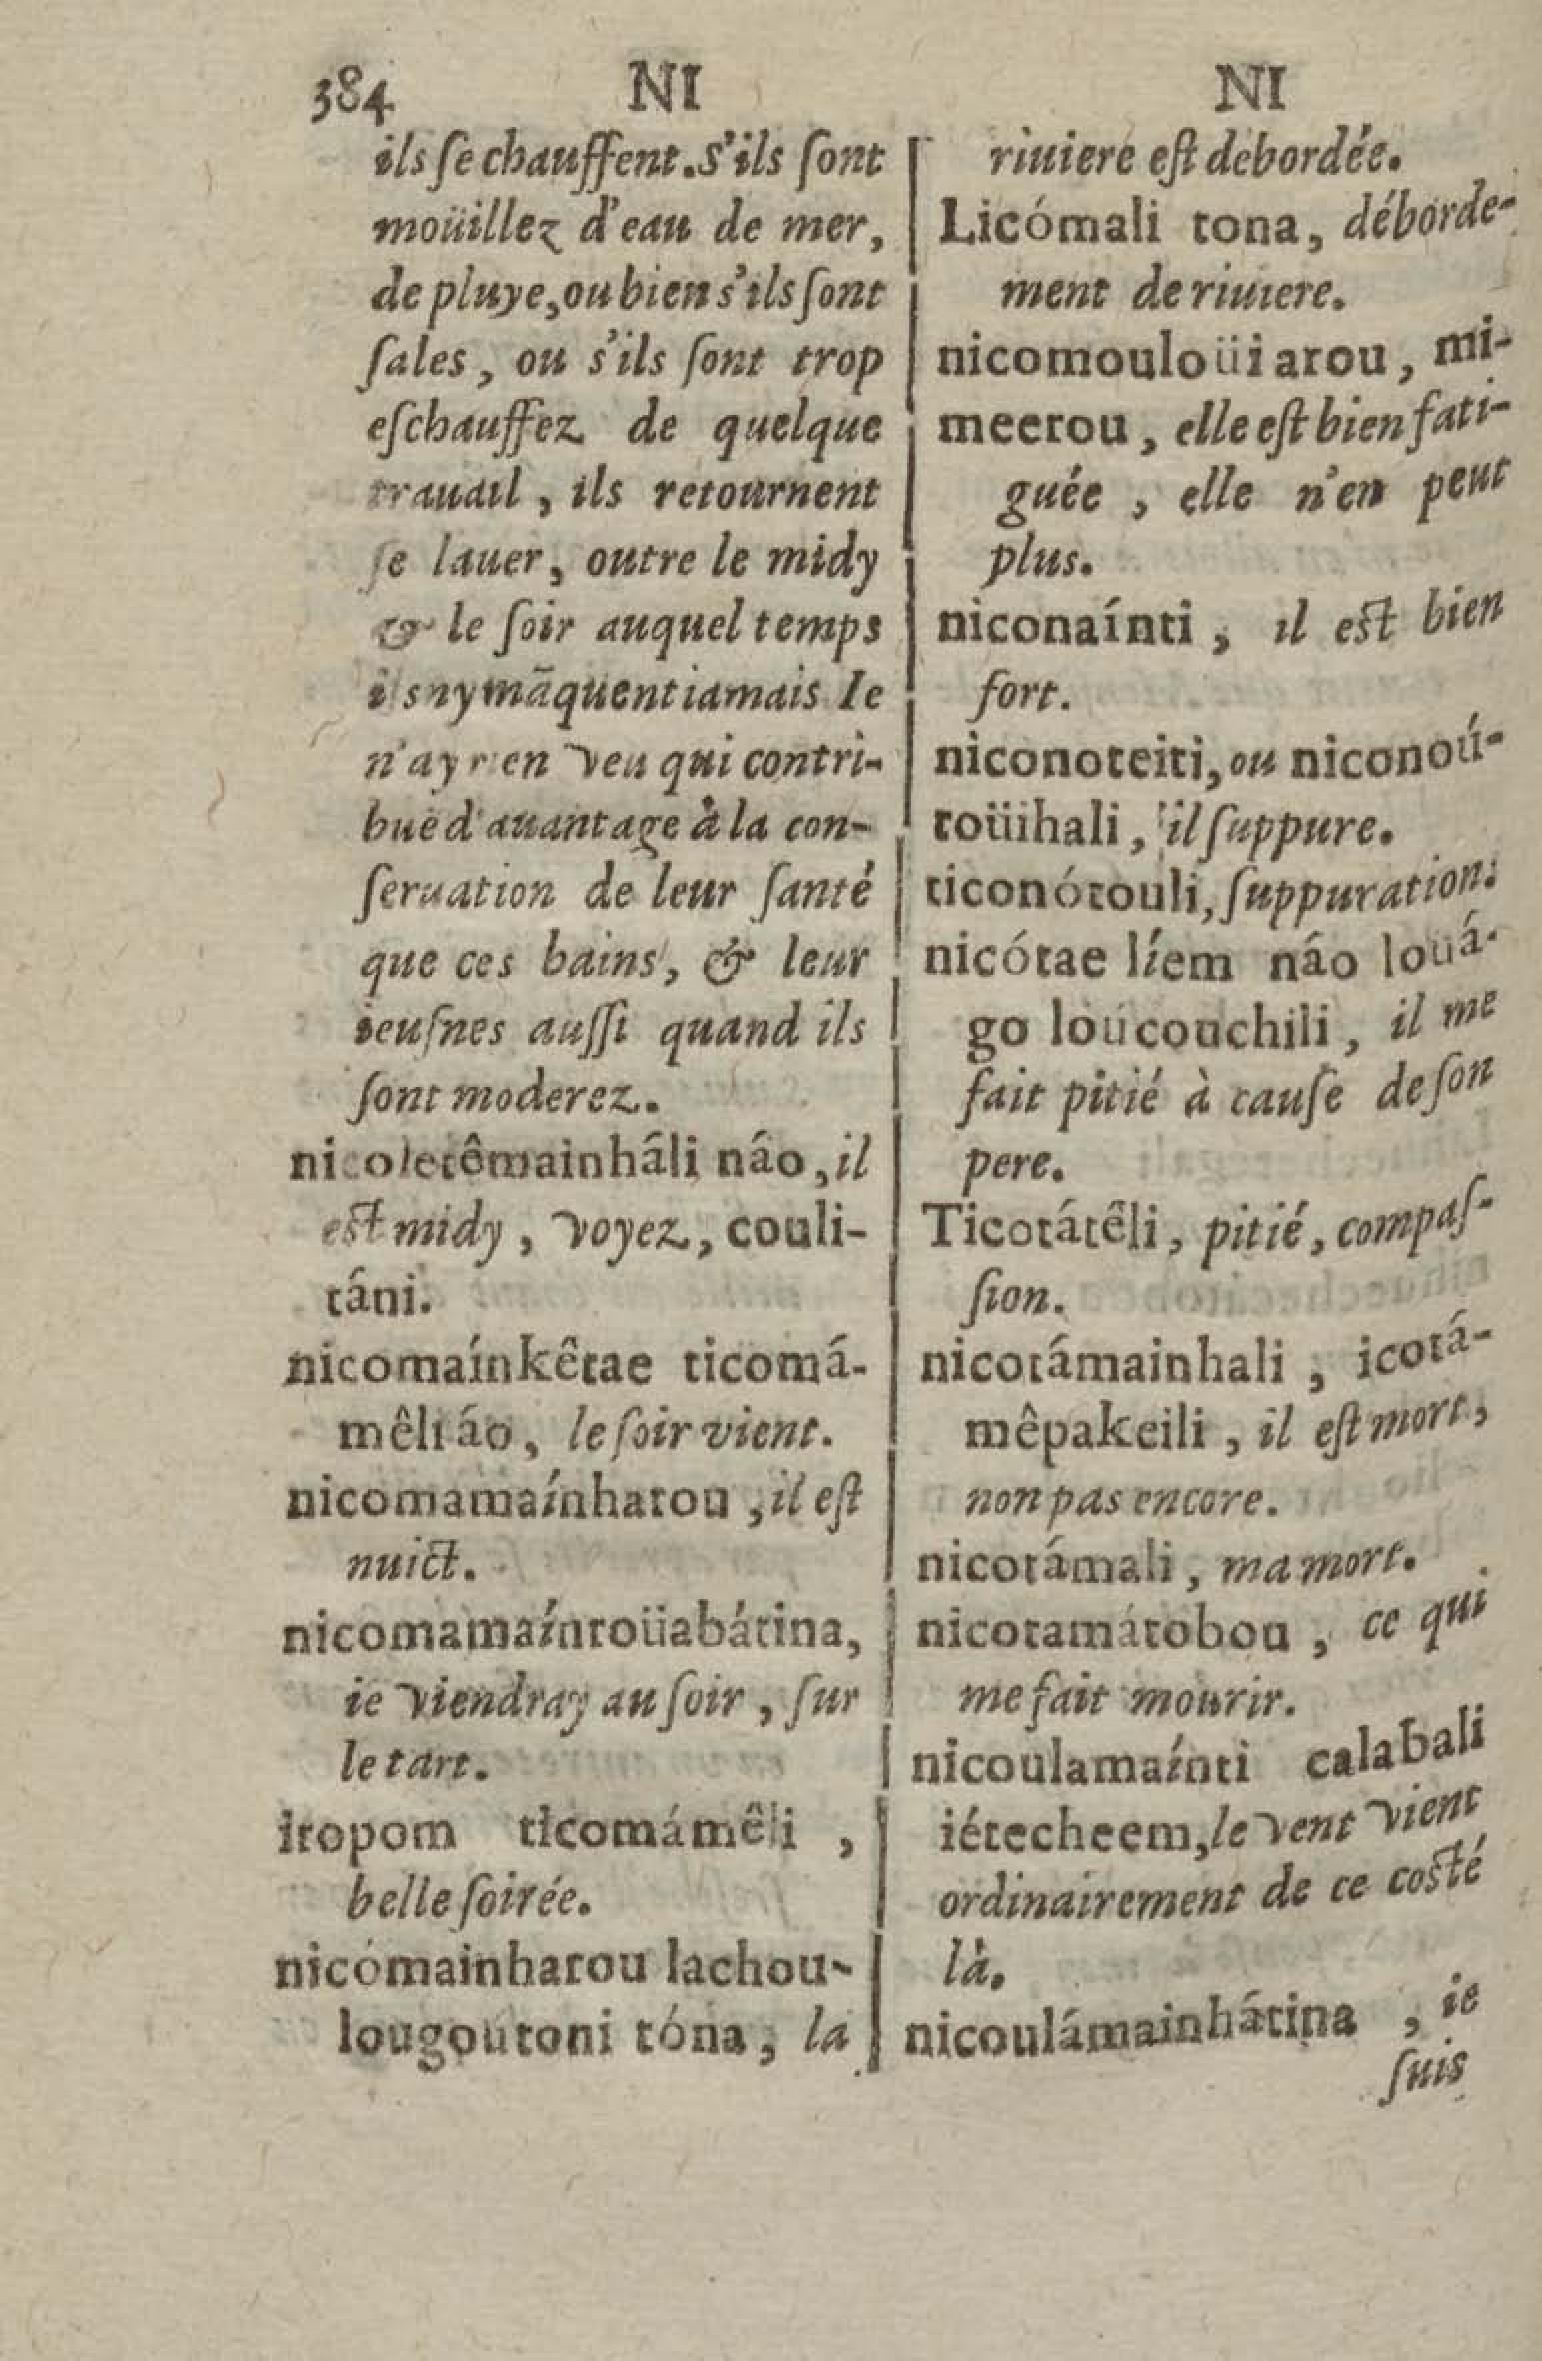 384 NI
ils ſe chauffent. S'ils ſont
moüillez d'eau de mer,
de pluye, ou bien s'ils ſont
ſales, ou s'ils ſont trop
eſchauffez de quelque
trauail, ils retournent
ſe lauer, outre le midy
& le ſoir auquel temps
ils ny mãquent iamais Ie
n'ay rien veu qui contri-
bue d'auantage à la con-
ſeruation de leur ſanté
que ces bains, & leur
ieuſnes auſſi quand ils
ſont moderez.
nicoletêmainhâli náo, il
eſt midy, voyez, couli-
tâni.
nicomaínkêtae ticomá-
mêli áo, le ſoir vient.
nicomamaínharou, il eſt
nuict.
nicomamaíntoüabátina,
ie viendray au ſoir, ſur
le tart.
itopom ticomámêli,
belle ſoirée.
nicómainharou lachou-
lougoutoni tóna, la
NI
riuiere eſt débordée.
Licómali tona, déborde-
ment de riuiere.
nicomouloüiarou, mi-
meerou, elle eſt bien fati-
guée, elle n'en peut
plus.
niconaínti, il eſt bien
fort.
niconoteiti, ou niconoú-
toüihali, il ſuppure.
ticonótouli, ſuppuration.
nicótae líem náo louá-
go loúcouchili, il me
fait pitié à cauſe de ſon
pere.
Ticotátêli, pitié, compaſ-
ſion.
nicotámainhali, icotá-
mêpakeili, il eſt mort,
non pas encore.
nicotámali, ma mort.
nicotamátobou, ce qui
me fait mourir.
nicoulamaínti calabali
iétecheem, le vent vient
ordinairement de ce coſté
là.
nicoulámainhátina, ie
ſuis